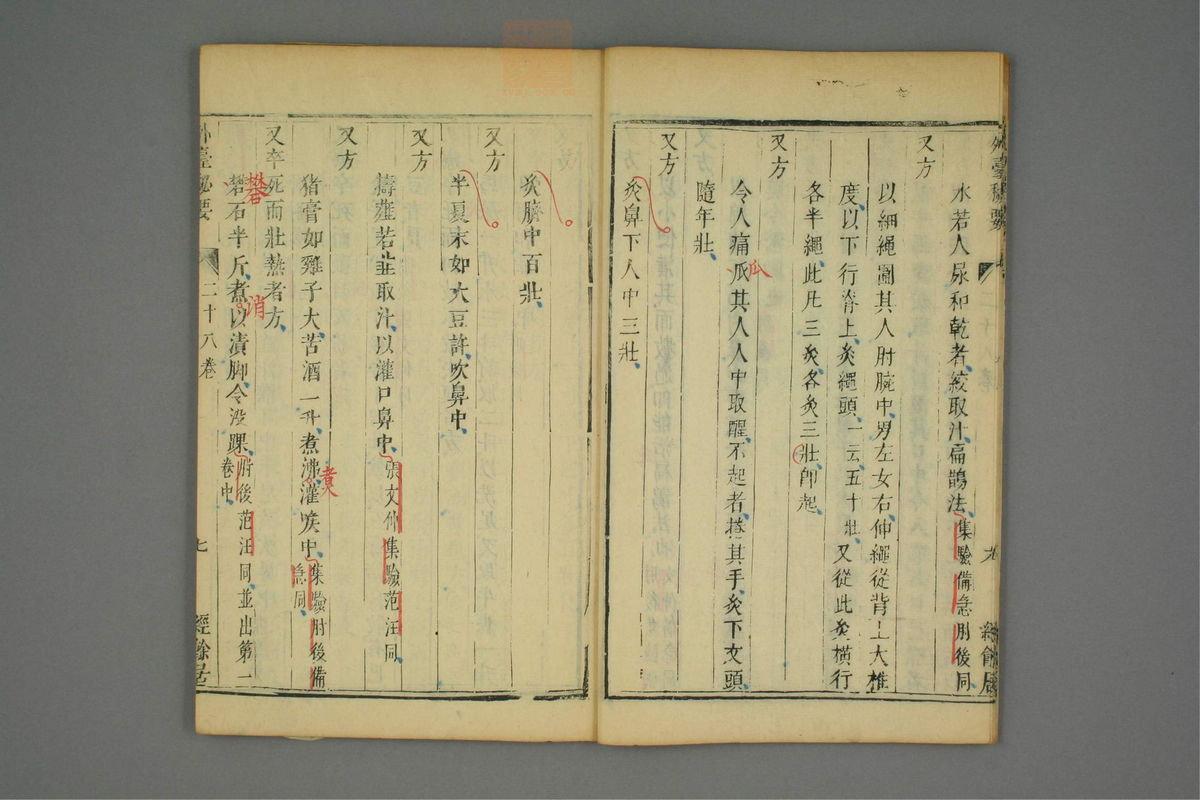 水若人尿和乾者絞取汁扁鵲法集驗備急肘後同
又方
以細繩圍其人肘腕中男左女右伸繩從背上大椎
度以下行脊上灸繩頭一云五十壯又從此灸橫行
各半繩此凡三灸各灸三壯即起
又方
令人痛爪其人人中取醒不起者捲其手灸下文頭
隨年壯
又方
灸鼻下人中三壯
灸臍中百壯
又方
半夏末如大豆許吹鼻中
又方
擣薤若韭取汁以灌口鼻中張文仲集驗范汪同
又方
猪膏如雞子大苦酒一升煮沸灌喉中集驗肘後備
急同
又卒死而壯熱者方
礬石半斤煮以漬脚令没踝肘後范汪同並出第一
卷中
外臺秘要
二十八卷
七
經餘居
爪
煮
礬
消
外臺秘要
經餘居